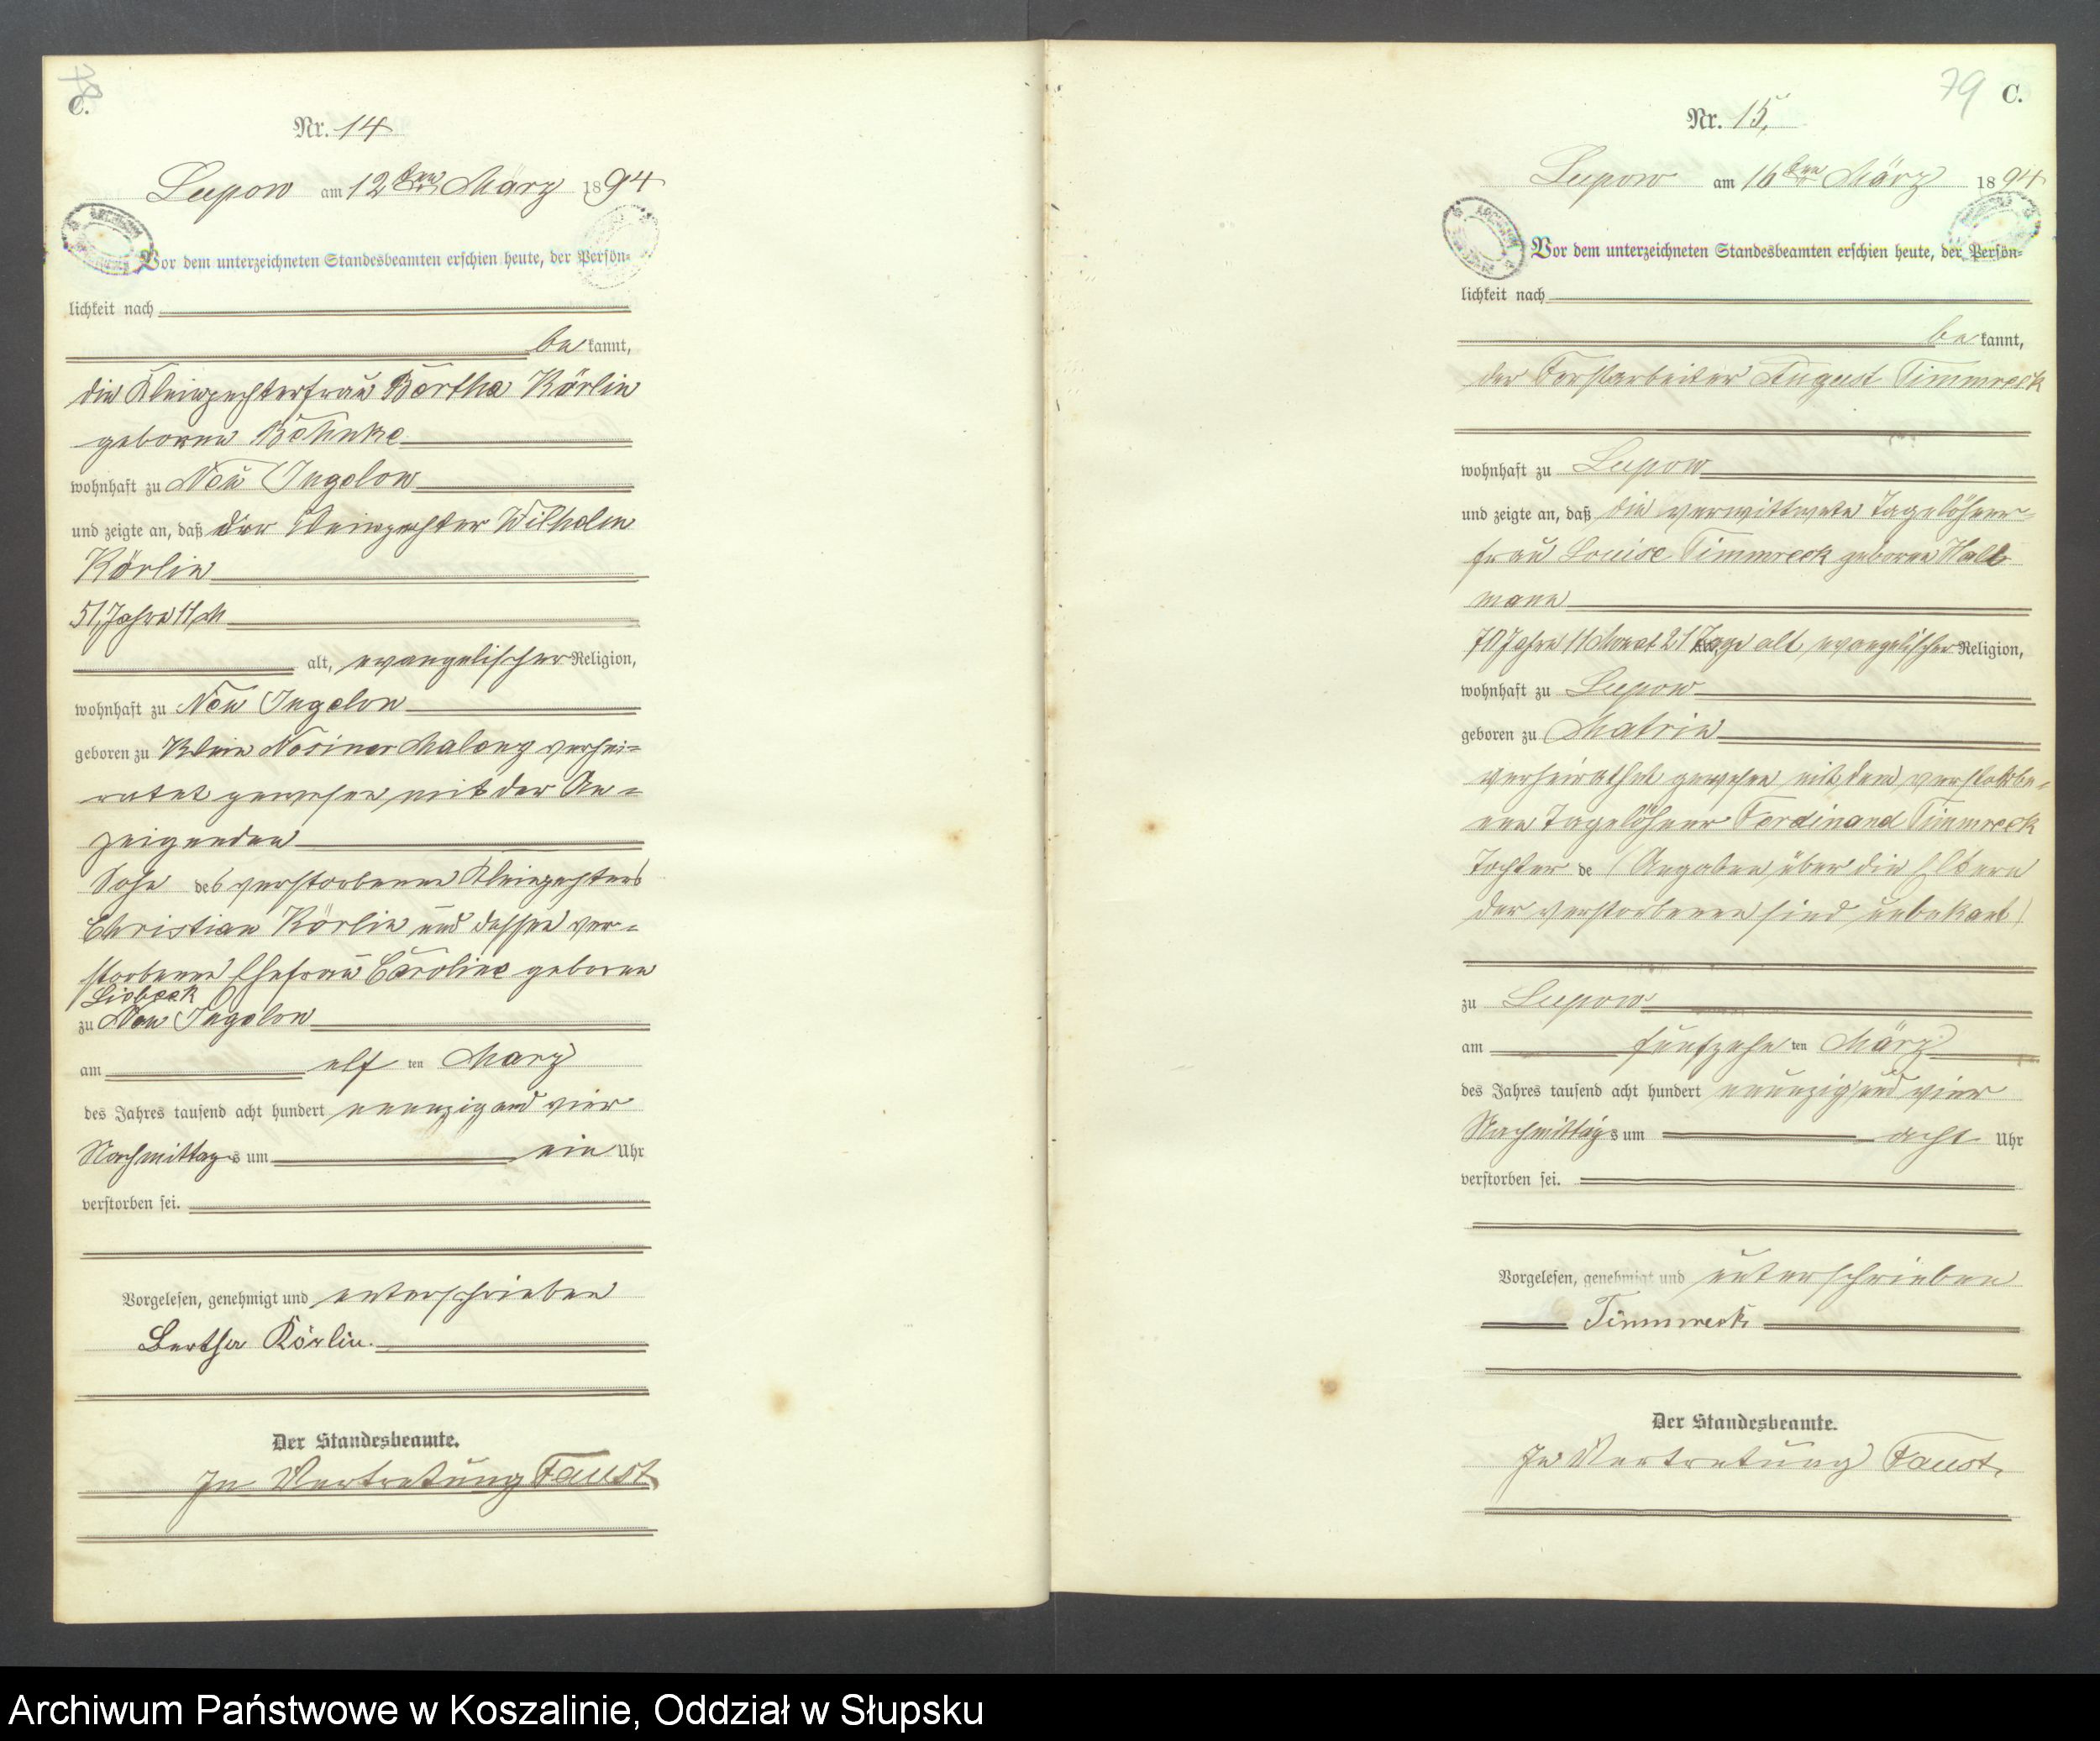 C.
Nr. 14
Lupow am 12ten März 1894
Vor dem unterzeichneten Standesbeamten erschien heute, der Persön=
lichkeit nach
bekannt,
die Kleinpechterfrau Bertha Körlin
geborene Böhnke
wohnhaft zu Neu Jugelow
und zeigte an, daß der Kleinpechter Wilhelm
Körlin
51 Jahre 11 M
alt, evangelischer Religion,
wohnhaft zu Neu Jugelow
geboren zu Klein Nosiner verhei=
ratet gewesen mit der An=
zeigenden
Sohn des verstorbenen Kleinpechters
Christian Körlin und dessen ver=
storbenen Ehefrau Caroline geborene
Liobeck
zu Neu Jugelow
am elf ten März
des Jahres tausend acht hundert neunzig und vier
Nachmittags um ein Uhr
verstorben sei.
Vorgelesen, genehmigt und unterschrieben
Bertha Körlin.
Der Standesbeamte.
In Vertretung Faust
79 C.
Nr. 15,
Lupow am 16ten März 1894
Vor dem unterzeichneten Standesbeamten erschien heute, der Persön=
lichkeit nach
bekannt,
der Forstarbeiter August Timmreck
wohnhaft zu Lupow
und zeigte an, daß die verwittwete Tagelöhner=
frau Louise Timmreck geborene Halb
mann
70 Jahre 11 Monat 21 Tage alt, evangelischer Religion,
wohnhaft zu Lupow
geboren zu Malrin
verheirathet gewesen mit dem verstorbe=
nen Tagelöhner Ferdinand Timmreck
Tochter de (Angaben über die Eltern
der verstorbenen sind unbekant)
zu Lupow
am fünfzehn ten März
des Jahres tausend acht hundert neunzig und vier
Nachmittags um acht Uhr
verstorben sei.
Vorgelesen, genehmigt und unterschrieben
Timmreck
Der Standesbeamte.
In Vertretung Faust.
Archiwum Państwowe w Koszalinie, Oddział w Słupsku